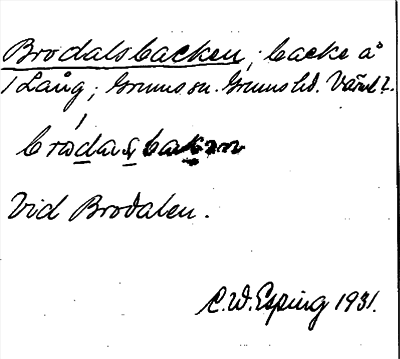 Brodalsbacken; backe å
1 Lång; Grums sn. Grums hd. Värml.
Vid Brodalen.
C.W. Esping 1931.